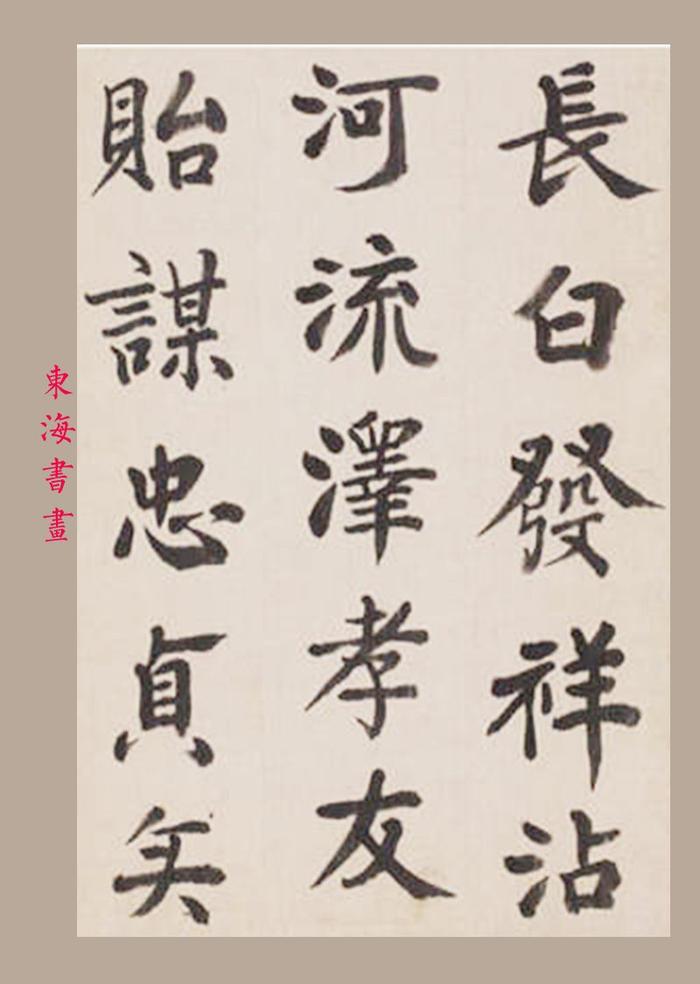 長白發祥沾
河流澤孝友
貽謀忠貞矢
東海書畫